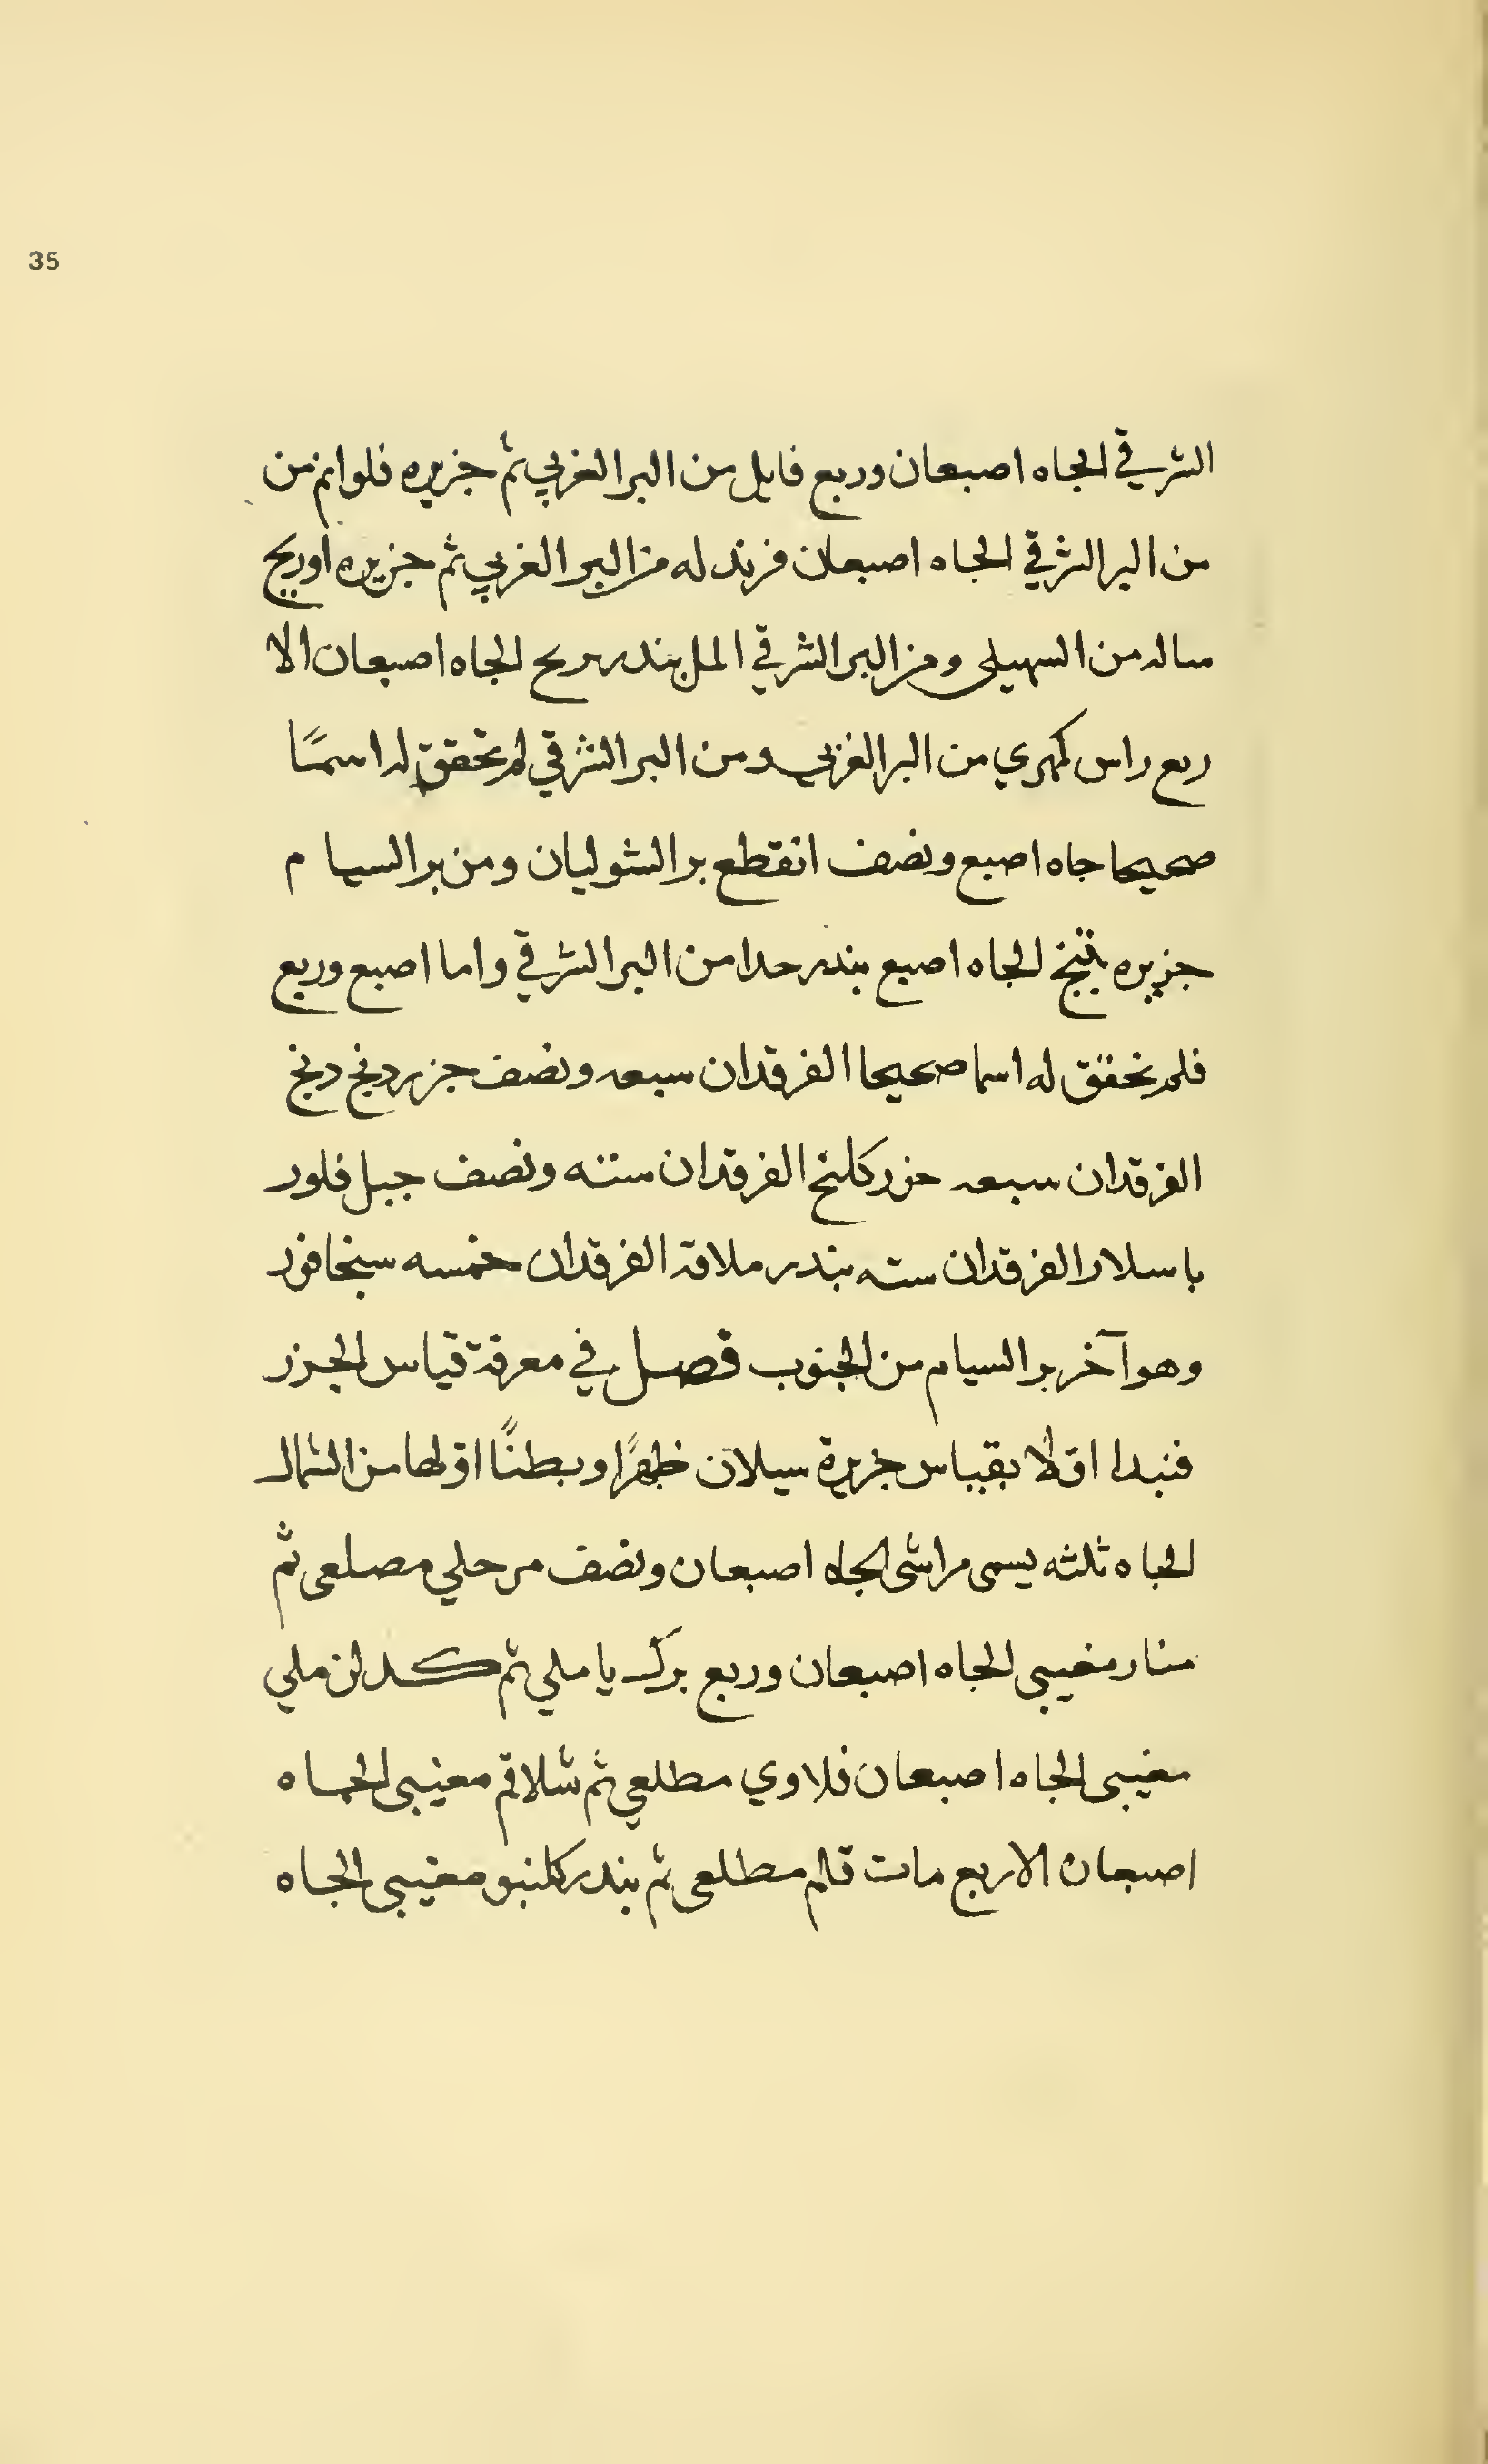 35
الشرقي الجاه اصبعان وربع فايل من البر الغربي ثم جزيره فلوانم من
من البر الشرقي الجاه اصبعان فرند له من البر الغربي ثم جزيره اوريح
ساله من السهيلي ومن البر الشرقي الملل بندر مريح الجاه اصبعان الا
ربع راس كمهري من البر الغربي ومن البر الشرقي لم تحقق له اسمًا
صحيحا جاه اصبع ونصف انقطع بر الشوليان ومن بر السيام
جزيره بتنج الجاه اصبع بندر حدا من البر الشرقي واما اصبع وربع
فلم تحقق له اسما صحيحا الفرقدان سبعه ونصف جزر دنج دنج
الفرقدان سبعه جزر كلنج الفرقدان سته ونصف جبل فلور
باسلار الفرقدان سته بندر ملاقة الفرقدان خمسه سنجافور
وهو آخر بر السيام من الجنوب فصل في معرفة قياس الجزر
فنبدا اوّلا بقياس جزيرة سيلان ظهرًا وبطنًا اوّلها من الشمال
الجاه ثلثه يسمى مراشى الجاه اصبعان ونصف مرحلي مصلعى ثم
منار مغيبي الجاه اصبعان وربع برك ياملي ثم كدلن ملي
مغيبى الجاه اصبعان نلاوي مطلعي ثم شلاقم مغيبى الجاه
اصبعان الا ربع مات قلم مطلعى ثم بندر كلنبو مغيبى الجاه